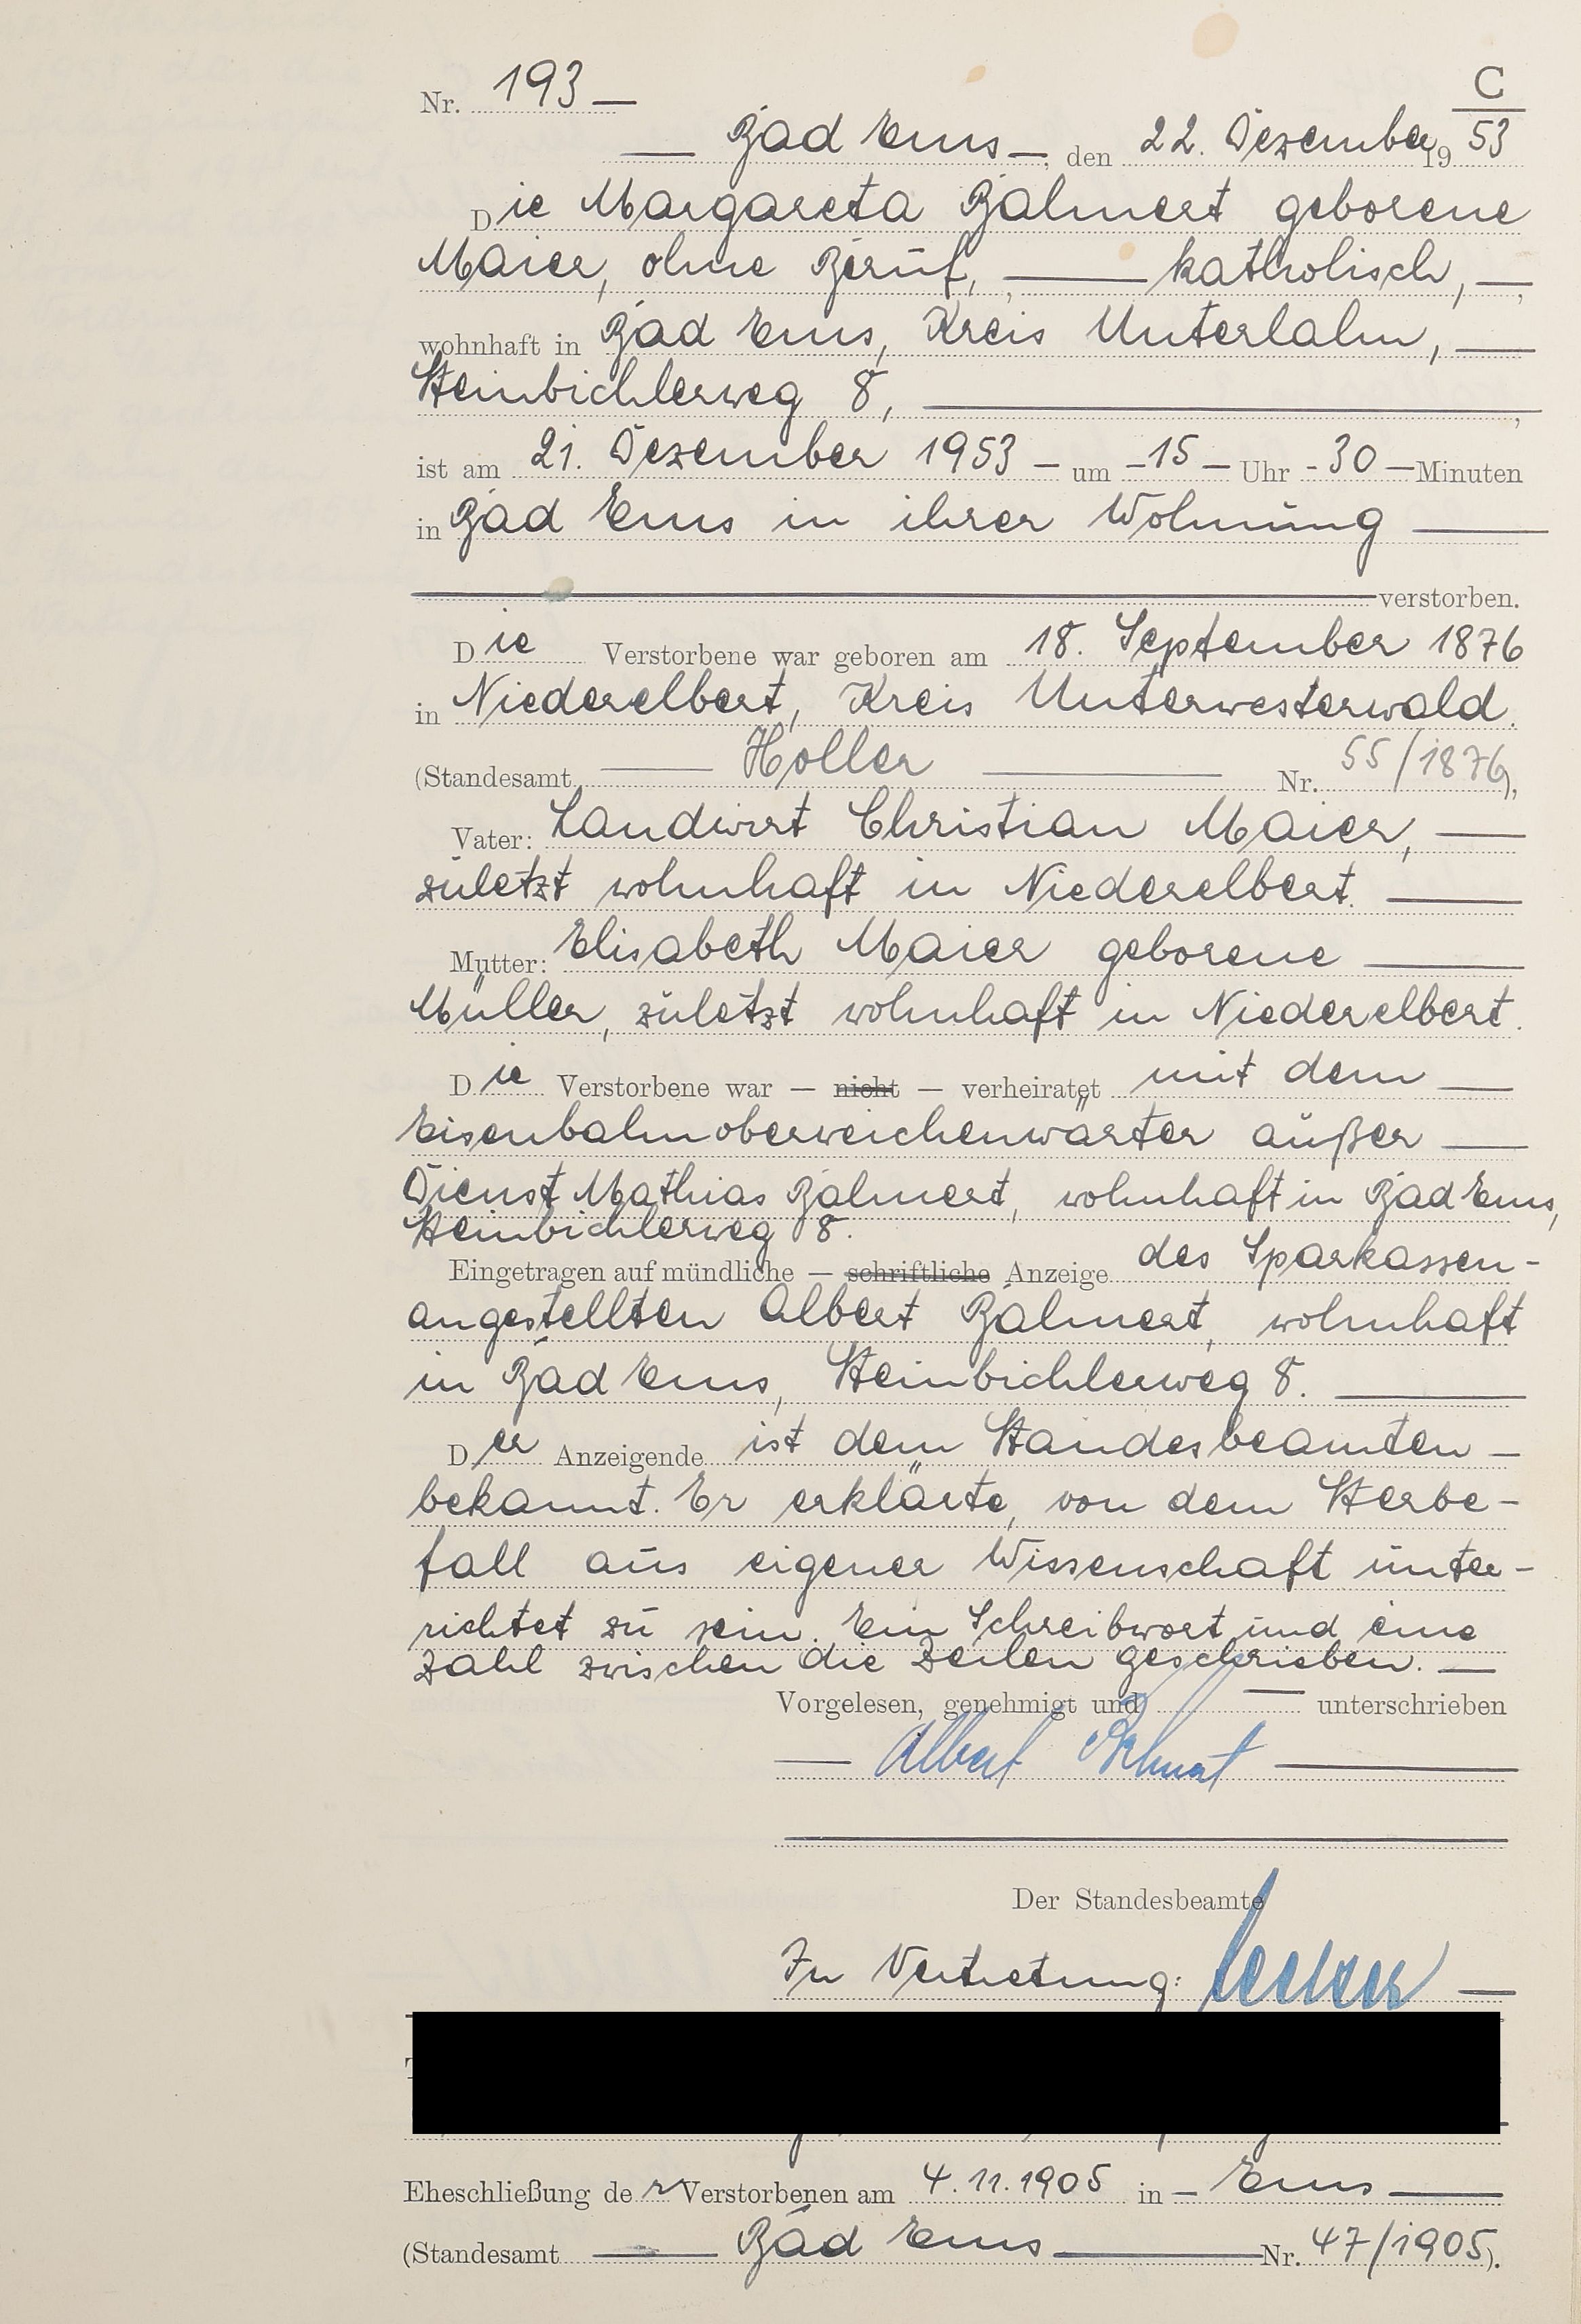 C
Nr. 193
Bad Ems, den 22. Dezember 1953
Die Margareta Balmert geborene
Maier, ohne Beruf, katholisch,
wohnhaft in Bad Ems, Kreis Unterlahn,
Steinbichlerweg 8,
ist am 21. Dezember 1953 um 15 Uhr 30 Minuten
in Bad Ems in ihrer Wohnung
verstorben.
Die Verstorbene war geboren am 18. September 1876
in Niederelbert, Kreis Unterwesterwald.
(Standesamt Holler Nr. 55/1876),
Vater: Landwirt Christian Maier,
zuletzt wohnhaft in Niederelbert.
Mutter: Elisabeth Maier geborene
Müller, zuletzt wohnhaft in Niederelbert.
Die Verstorbene war — nicht — verheiratet mit dem
Eisenbahnoberweichenwärter außer
Dienst Mathias Balmert, wohnhaft in Bad Ems,
Steinbichlerweg 8.
Eingetragen auf mündliche — schriftliche Anzeige des Sparkassen-
angestellten Albert Balmert, wohnhaft
in Bad Ems, Steinbichlerweg 8.
Der Anzeigende ist dem Standesbeamten
bekannt. Er erklärte, von dem Sterbe-
fall aus eigener Wissenschaft unter-
richtet zu sein. Ein Schreibwort und eine
Zahl zwischen die Zeilen geschrieben.
Vorgelesen, genehmigt und unterschrieben
Albert Balmert
Der Standesbeamte
In Vertretung:
Eheschließung der Verstorbenen am 4.11.1905 in Ems
(Standesamt Bad Ems Nr. 47/1905).